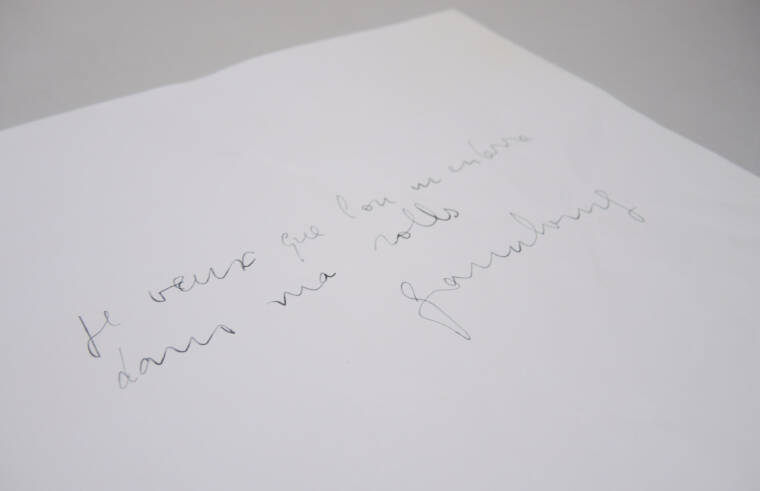 Je veux que l'on m'enterre
dans ma rolls
Gainsbourg